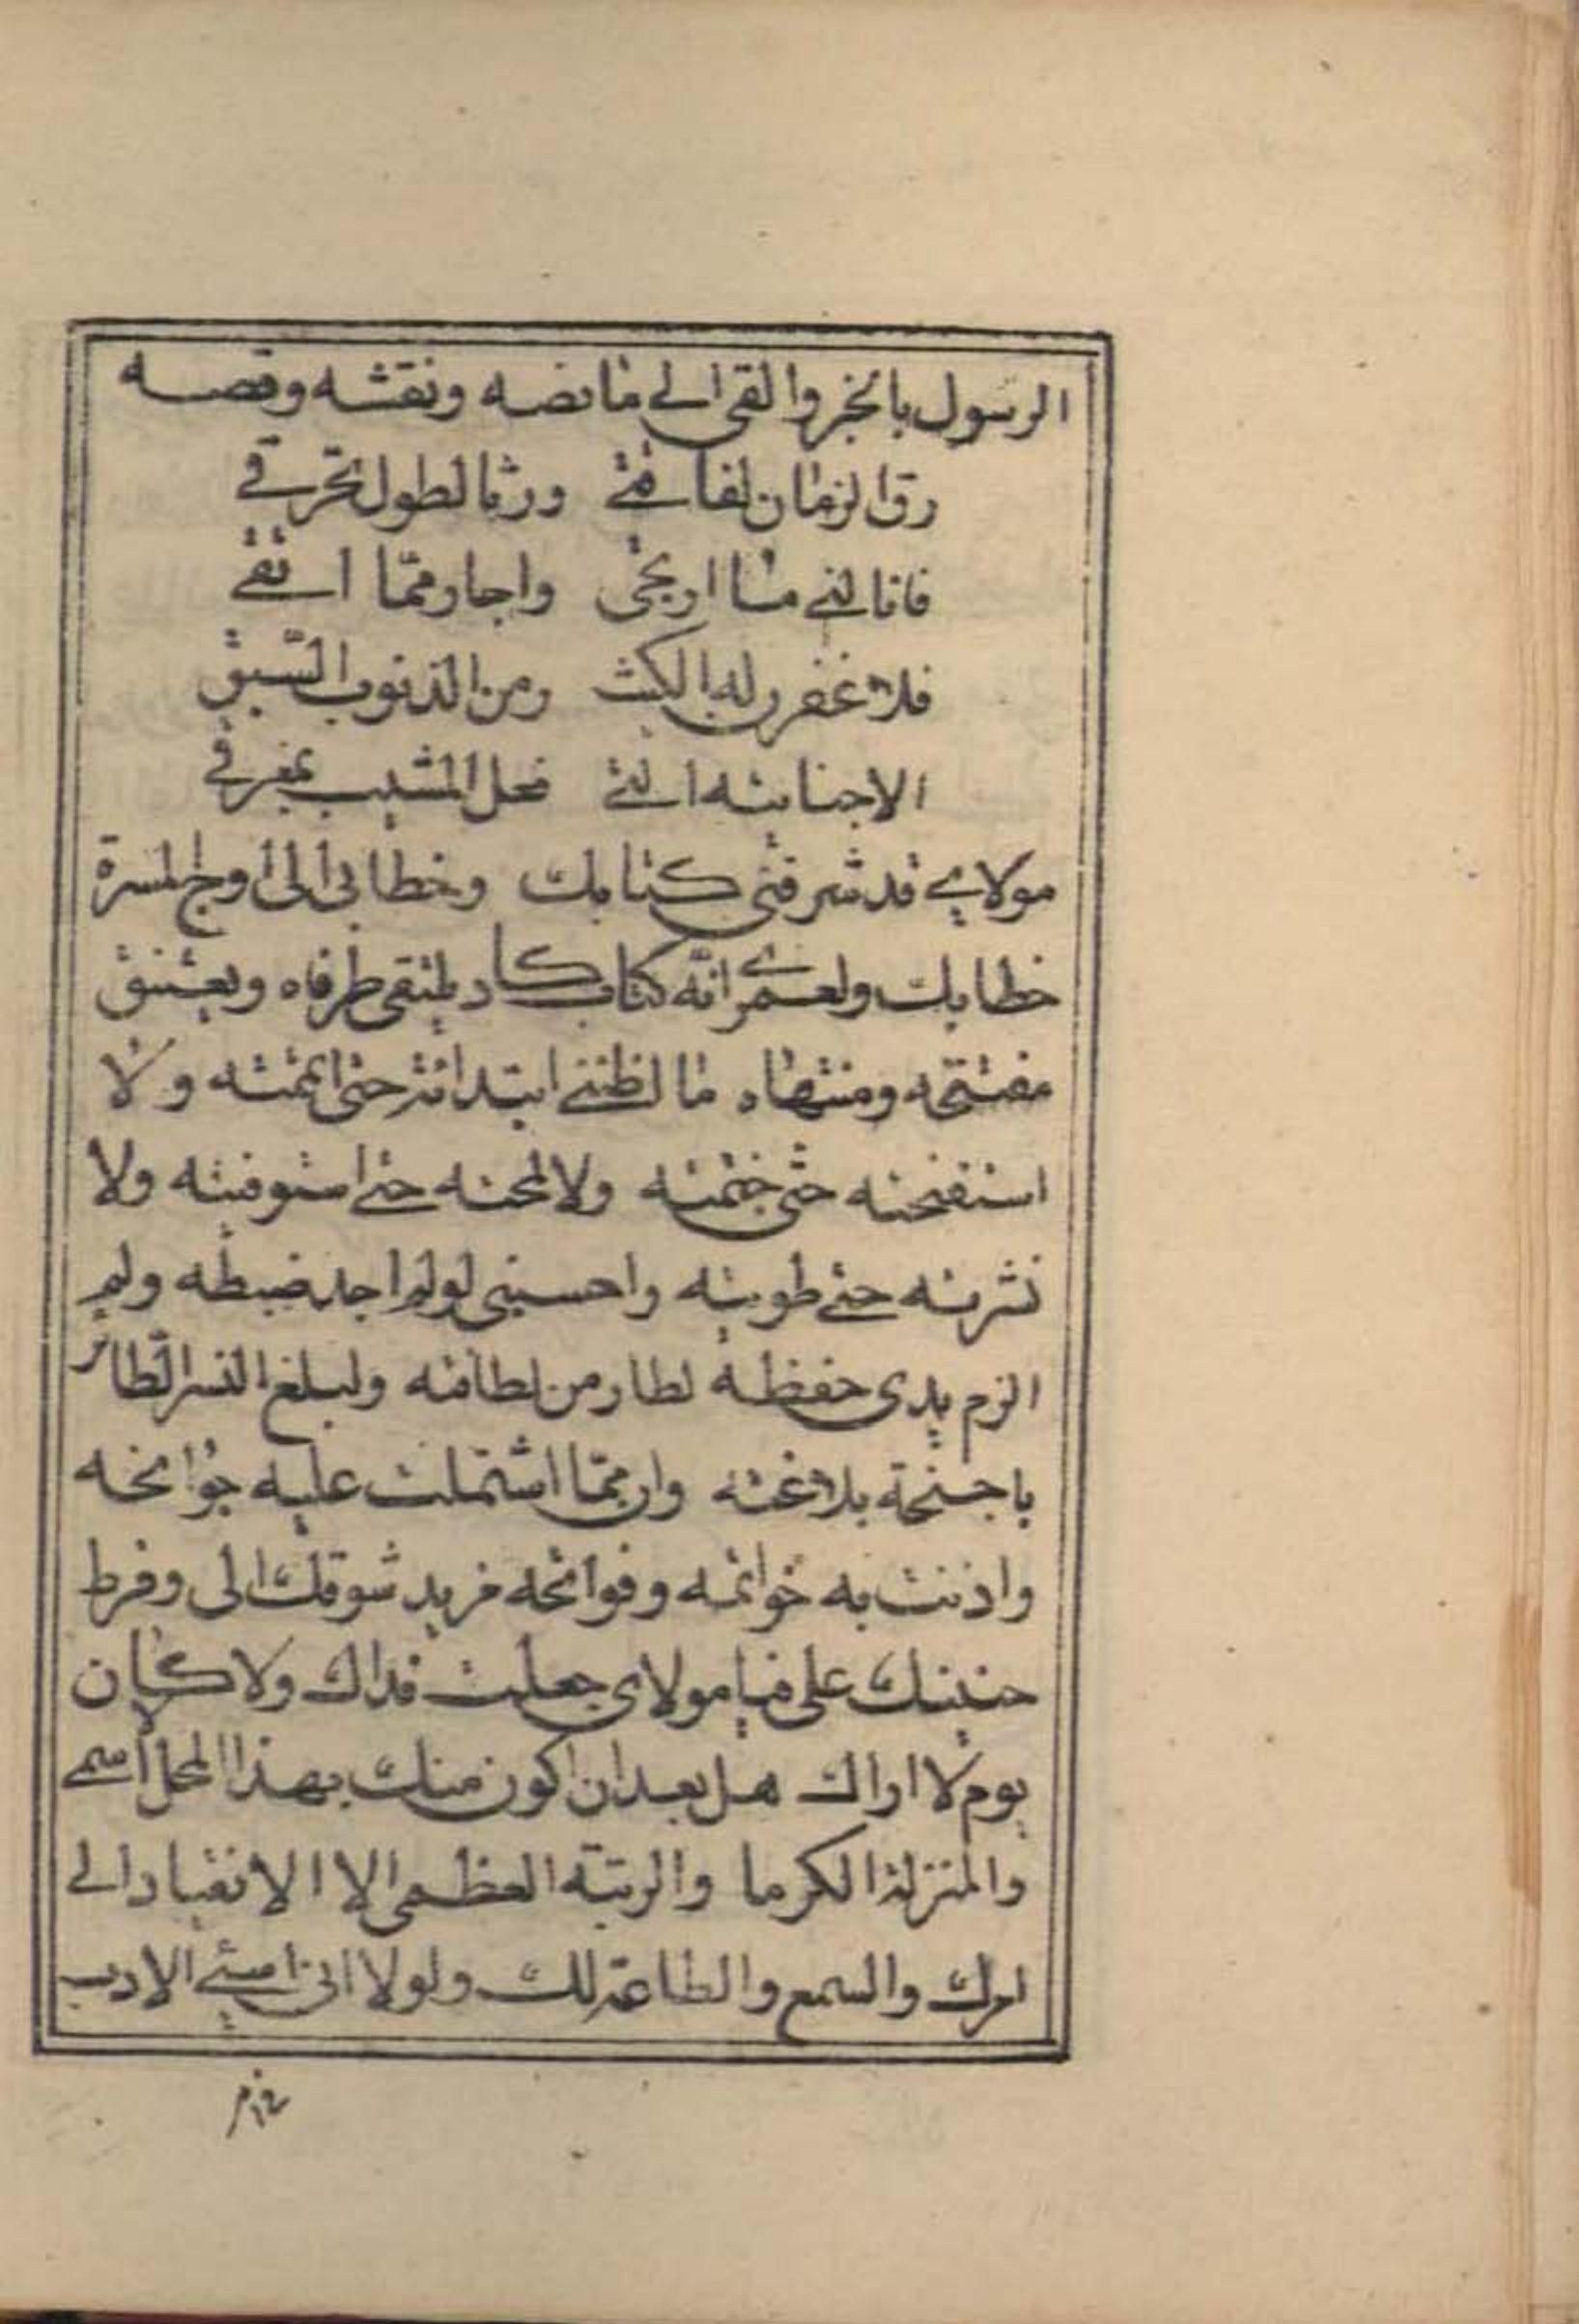 الرسول بالخبر والقى الي ما نصه ونقشه وقصه
رق الزمان لفاقتي ورثا لطول تحرقي
فانالني ما ارتجى واجار مما اتقي
فلاغفرن له الكث ومن الذنوب السبق
الا جنايته التي فعل المشيب بمفرقي
مولاي قد شرفني كتابك وخطا بي الى اوج المسرة
خطابك ولعمري انه كتاب كاد يلتقى طرفاه ويعتنق
مفتتحه ومنتهاه ما لظنني ابتدائه حتى اتممته ولا
استفتحته حتى ختمته ولا لمحته حتى استوفيته ولا
نشرته حتى طويته واحسبني لو لم اجد ضبطه ولم
الزم يدى حفظه لطار من لطافته وليبلغ النسر الطائر
باجنحة بلاغته وان مما اشتملت عليه جوانحه
واذنت به خواتمه وفواتحه مزيد شوقك الى وفرط
حنينك على فيا مولاى جعلت فداك ولا كان
يوم لا اراك هل بعد ان اكون منك بهذا المحل اسمي
والمنزلة الكرما والرتبة العظمى الا الانقياد الي
امرك والسمع والطاعة لك ولولا انى اسئ الادب